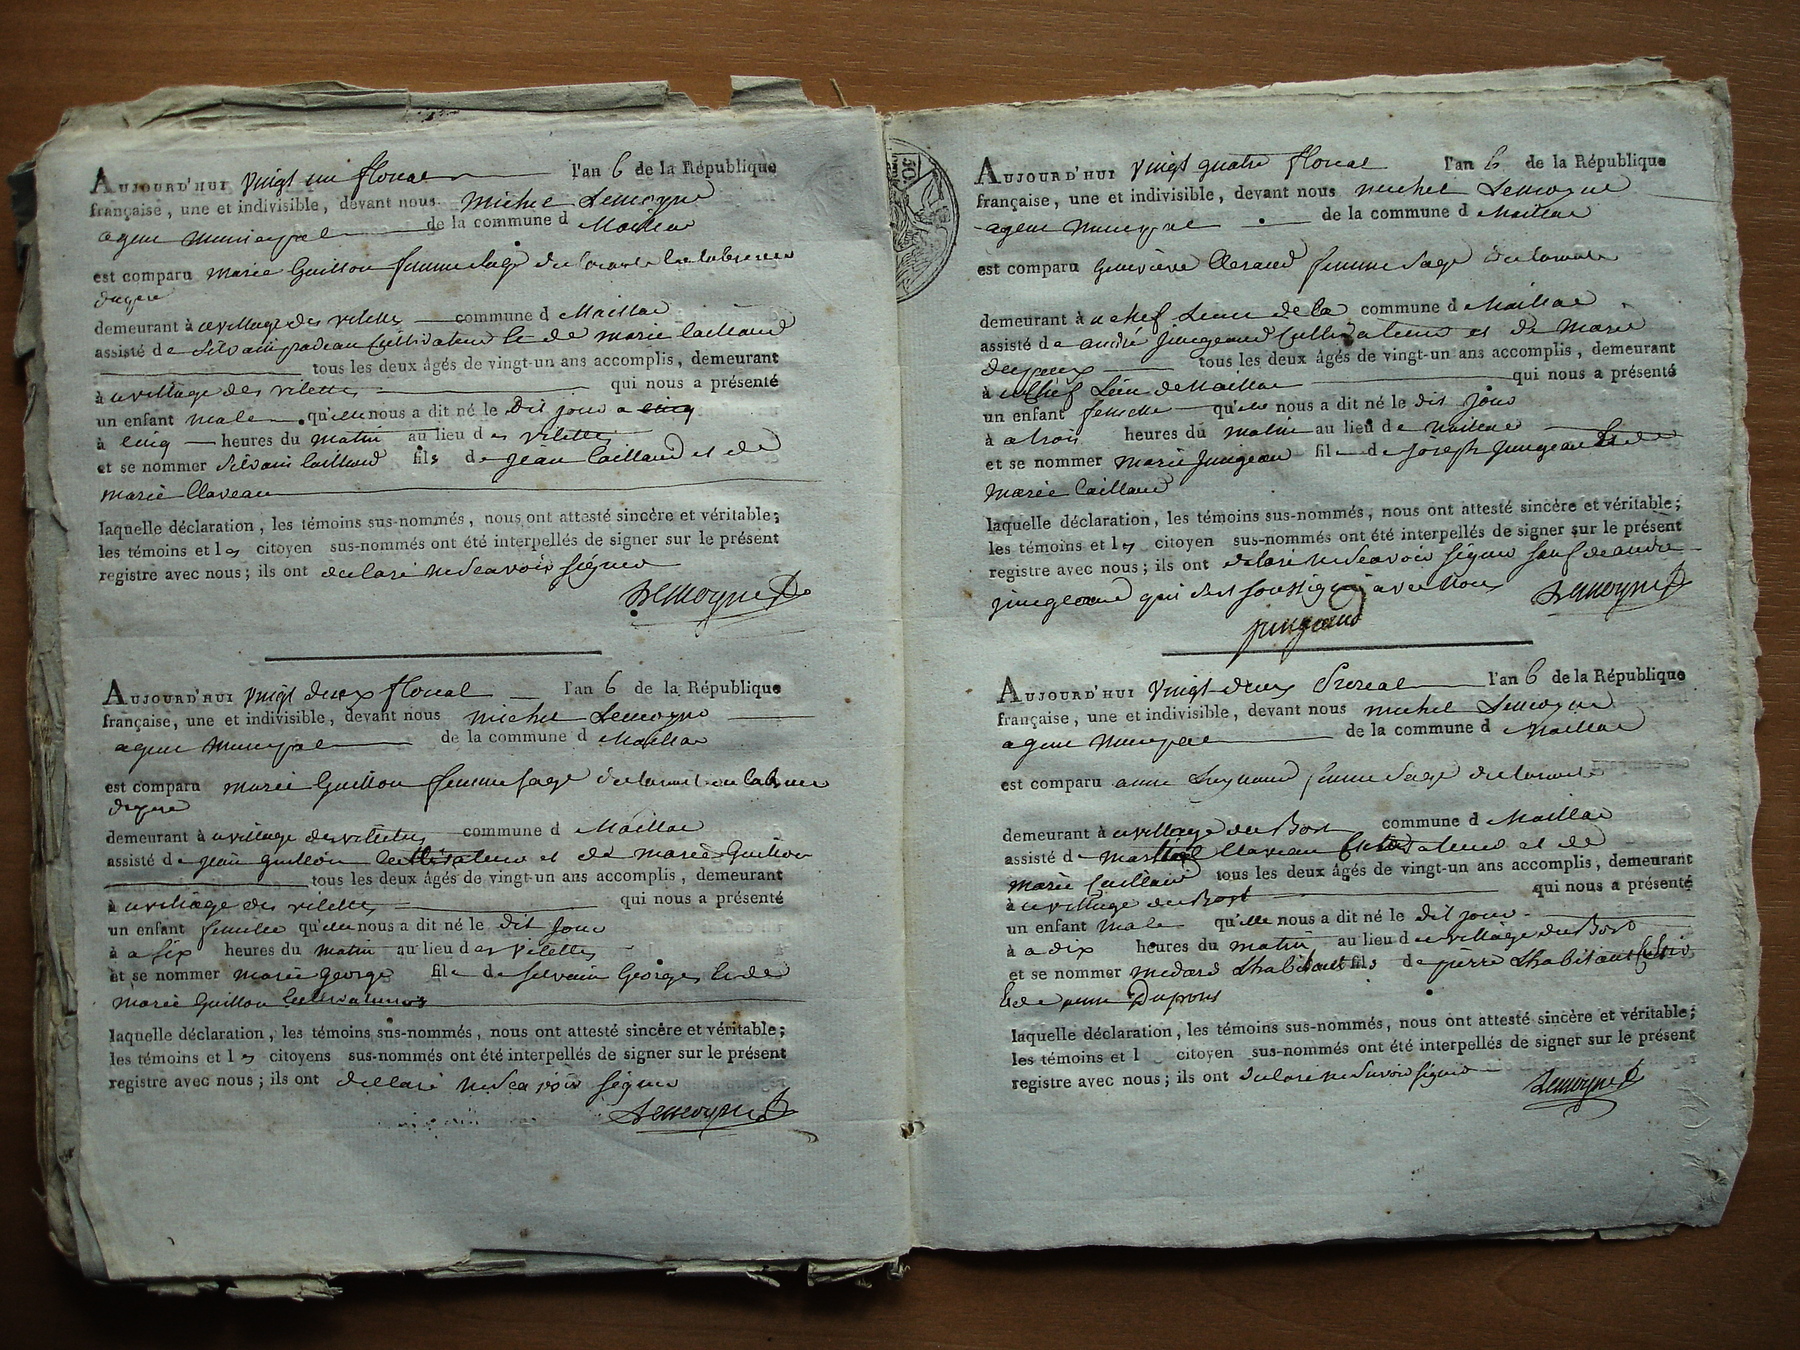 AUJOURD'HUI Vingt un floreal l'an 6 de la République
française, une et indivisible, devant nous Michel Lemoyne
agent municipal de la commune d Maillac
est comparu marie Guillon femme sage
demeurant à u village des vilettes commune d Maillac
assisté de Silvain cultivateur et de marie Caillaud
tous les deux âgés de vingt-un ans accomplis, demeurant
à u village des vilettes qui nous a présenté
un enfant male qu'elle nous a dit né le dit jour a cinq
à cinq heures du matin au lieu des vilettes
et se nommer Silvain Caillaud fils de Jean Caillaud et de
marie Claveau
laquelle déclaration, les témoins sus-nommés, nous ont attesté sincère et véritable;
les témoins et les citoyen sus-nommés ont été interpellés de signer sur le présent
registre avec nous; ils ont declaré ne scavoir signer
Lemoyne
AUJOURD'HUI Vingt deux floreal l'an 6 de la République
française, une et indivisible, devant nous michel Lemoyne
agent municipal de la commune d Maillac
est comparu marie Guillon femme sage
demeurant à u village des vilettes commune d Maillac
assisté de jean guillon cultivateur et de marie Guillon
tous les deux âgés de vingt-un ans accomplis, demeurant
à u village des vilettes qui nous a présenté
un enfant femelle qu'elle nous a dit né le dit jour
à a six heures du matin au lieu des vilettes
et se nommer marie george fille de silvain George et de
marie Guillon cultivateurs
laquelle déclaration, les témoins sus-nommés, nous ont attesté sincère et véritable;
les témoins et les citoyens sus-nommés ont été interpellés de signer sur le présent
registre avec nous; ils ont declaré ne scavoir signer
Lemoyne
AUJOURD'HUI vingt quatre floreal l'an 6 de la République
française, une et indivisible, devant nous michel Lemoyne
agent municipal de la commune d Maillac
est comparu Geneviève femme sage
demeurant à u chef Lieu de la commune d Maillac
assisté de andré jungeaud cultivateur et de Marie
tous les deux âgés de vingt-un ans accomplis, demeurant
à u chef Lieu de Maillac qui nous a présenté
un enfant femelle qu'elle nous a dit né le dit jour
à a trois heures du matin au lieu de maillac
et se nommer marie jungeau fille de joseph jungeau et de
marie Caillaud
laquelle déclaration, les témoins sus-nommés, nous ont attesté sincère et véritable;
les témoins et les citoyen sus-nommés ont été interpellés de signer sur le présent
registre avec nous; ils ont declaré ne scavoir signer sauf de andré
jungeaud qui s'est soussigné avec nous Lemoyne
jungeaud
AUJOURD'HUI Vingt deux l'an 6 de la République
française, une et indivisible, devant nous michel Lemoyne
agent municipal de la commune d Maillac
est comparu anne femme sage
demeurant à u village du Bost commune d Maillac
assisté de Claveau cultivateur et de
marie Caillaud tous les deux âgés de vingt-un ans accomplis, demeurant
à u village du Bost qui nous a présenté
un enfant male qu'elle nous a dit né le dit jour
à a dix heures du matin au lieu de u village du Bost
et se nommer medard Lhabitant fils de pierre Lhabitant
et de anne Dupeux
laquelle déclaration, les témoins sus-nommés, nous ont attesté sincère et véritable;
les témoins et l citoyen sus-nommés ont été interpellés de signer sur le présent
registre avec nous; ils ont declaré ne scavoir signer Lemoyne